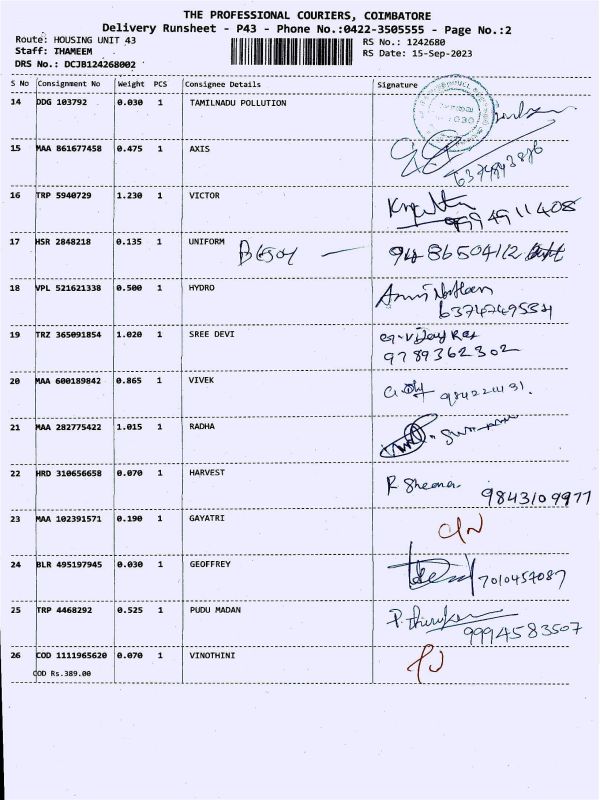 THE PROFESSIONAL COURIERS, COIMBATORE
Delivery Runsheet - P43 - Phone No.:0422-3505555 - Page No.:2
Route: HOUSING UNIT 43
RS No.: 1242680
Staff: THAMEEM
RS Date: 15-Sep-2023
DRS No.: DCJB124268002
S No Consignment No Weight PCS Consignee Details Signature
14 DDG 103792 0.030 1 TAMILNADU POLLUTION
15 MAA 861677458 0.475 1 AXIS
16 TRP 5940729 1.230 1 VICTOR
17 HSR 2848218 0.135 1 UNIFORM 9486504112
18 VPL 521621338 0.500 1 HYDRO
6374749534
19 TRZ 365091854 1.020 1 SREE DEVI
9789362302
20 MAA 600189842 0.865 1 VIVEK
21 MAA 282775422 1.015 1 RADHA
22 HRD 310656658 0.070 1 HARVEST R Sheena
9843109977
23 MAA 102391571 0.190 1 GAYATRI
24 BLR 495197945 0.030 1 GEOFFREY 7010457087
25 TRP 4468292 0.525 1 PUDU MADAN
9994583507
26 COD 1111965620 0.070 1 VINOTHINI
COD Rs.389.00